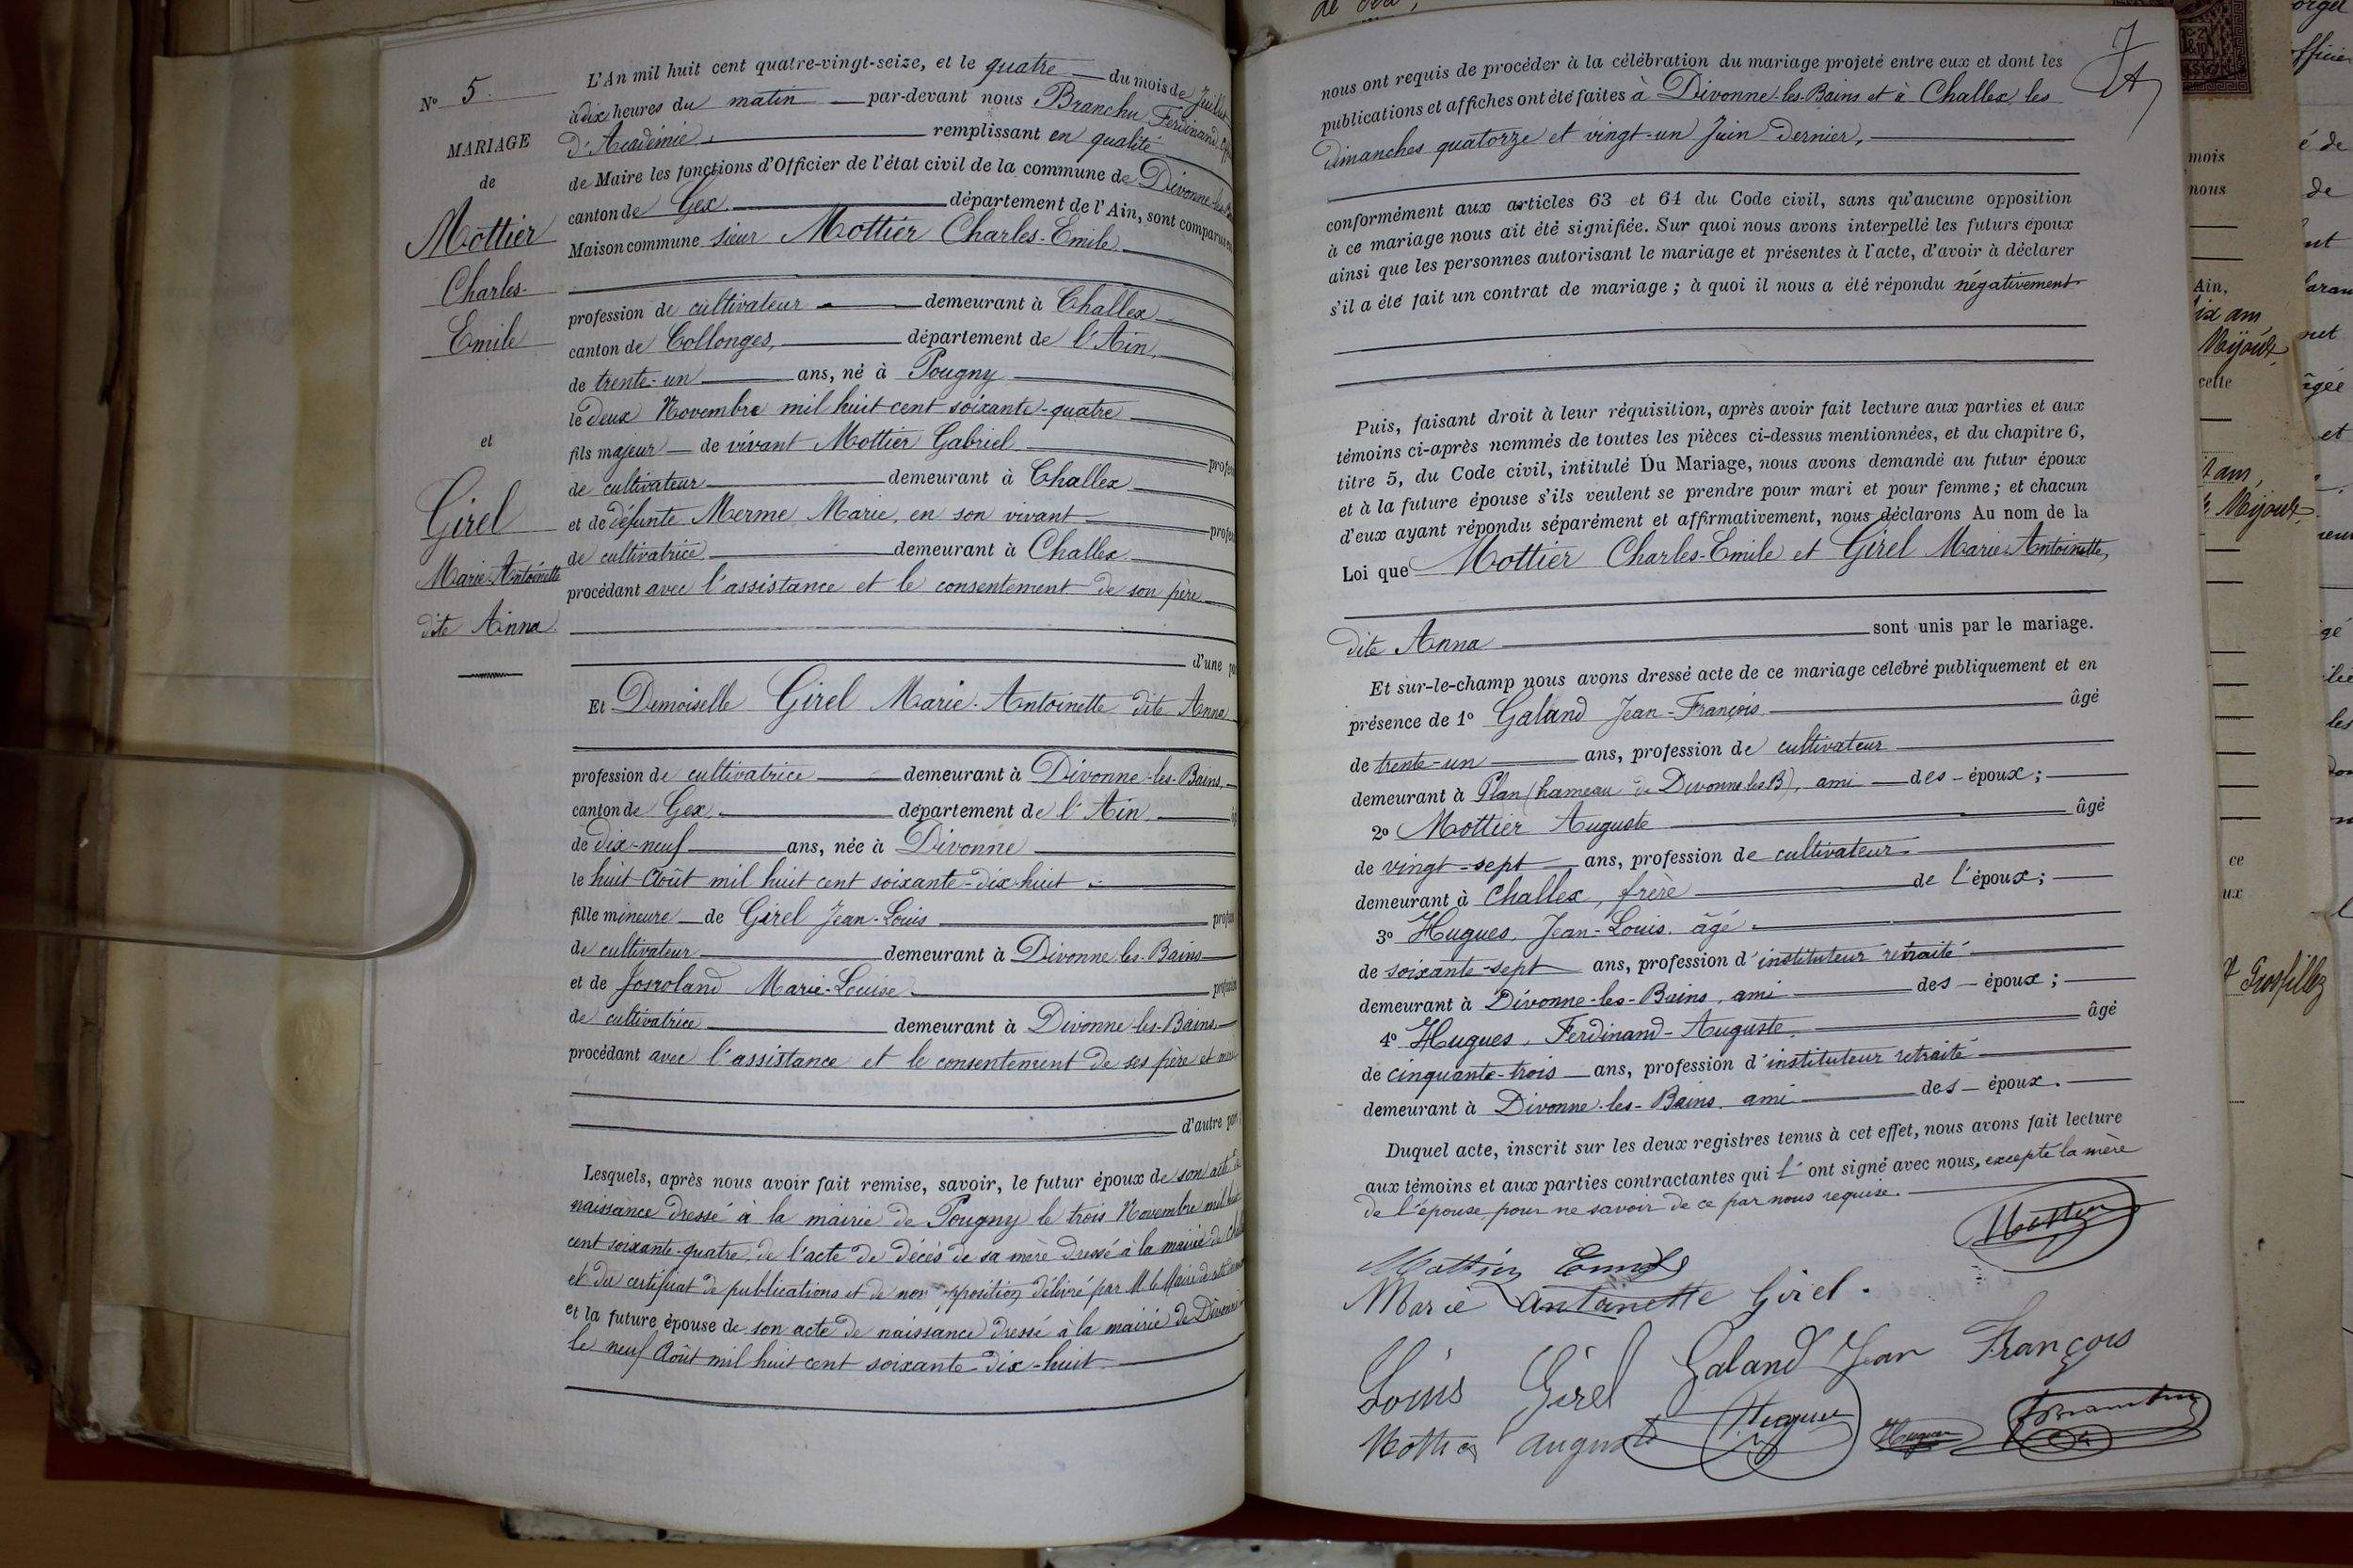 N° 5
MARIAGE
de
Mottier
Charles-
Emile
et
Girel
Marie-Antoinette
dite Anna
L'An mil huit cent quatre-vingt-seize, et le quatre du mois de Juillet
à dix heures du matin par-devant nous Branchu Ferdinand,
d'Académie, remplissant en qualité
de Maire les fonctions d'Officier de l'état civil de la commune de Divonne-les-
canton de Gex, département de l'Ain, sont comparus
Maison commune sieur Mottier Charles-Emile
profession de cultivateur demeurant à Challex
canton de Collonges, département de l'Ain,
de trente-un ans, né à Pougny
le deux Novembre mil huit cent soixante-quatre
fils majeur de vivant Mottier Gabriel
de cultivateur demeurant à Challex
et de défunte Merme Marie, en son vivant
de cultivatrice demeurant à Challex
procédant avec l'assistance et le consentement de son père
d'une
Et Demoiselle Girel Marie-Antoinette dite Anna
profession de cultivatrice demeurant à Divonne-les-Bains,
canton de Gex, département de l'Ain,
de dix-neuf ans, née à Divonne
le huit Août mil huit cent soixante-dix-huit
fille mineure de Girel Jean-Louis
de cultivateur demeurant à Divonne-les-Bains
et de Josroland Marie-Louise
de cultivatrice demeurant à Divonne-les-Bains
procédant avec l'assistance et le consentement de ses père et
d'autre
Lesquels, après nous avoir fait remise, savoir, le futur époux de son acte de
naissance dressé à la mairie de Pougny le trois Novembre mil huit
cent soixante-quatre, de l'acte de décès de sa mère dressé à la mairie de
et du certificat de publications et de non opposition délivré par M. le Maire de
et la future épouse de son acte de naissance dressé à la mairie de Divonne
le neuf Août mil huit cent soixante-dix-huit.
7
nous ont requis de procéder à la célébration du mariage projeté entre eux et dont les
publications et affiches ont été faites à Divonne-les-Bains et à Challex, les
dimanches quatorze et vingt-un Juin dernier,
conformément aux articles 63 et 64 du Code civil, sans qu'aucune opposition
à ce mariage nous ait été signifiée. Sur quoi nous avons interpellé les futurs époux
ainsi que les personnes autorisant le mariage et présentes à l'acte, d'avoir à déclarer
s'il a été fait un contrat de mariage ; à quoi il nous a été répondu négativement
Puis, faisant droit à leur réquisition, après avoir fait lecture aux parties et aux
témoins ci-après nommés de toutes les pièces ci-dessus mentionnées, et du chapitre 6,
titre 5, du Code civil, intitulé Du Mariage, nous avons demandé au futur époux
et à la future épouse s'ils veulent se prendre pour mari et pour femme ; et chacun
d'eux ayant répondu séparément et affirmativement, nous déclarons Au nom de la
Loi que Mottier Charles-Emile et Girel Marie-Antoinette,
dite Anna sont unis par le mariage.
Et sur-le-champ nous avons dressé acte de ce mariage célébré publiquement et en
présence de 1° Galand Jean-François âgé
de trente-un ans, profession de cultivateur
demeurant à Plan (hameau de Divonne les B), ami des époux ;
2° Mottier Auguste âgé
de vingt-sept ans, profession de cultivateur
demeurant à Challex, frère de l'époux ;
3° Hugues, Jean-Louis. âgé
de soixante-sept ans, profession d'instituteur retraité
demeurant à Divonne-les-Bains, ami des époux ;
4° Hugues, Ferdinand-Auguste, âgé
de cinquante-trois ans, profession d'instituteur retraité
demeurant à Divonne-les-Bains, ami des époux.
Duquel acte, inscrit sur les deux registres tenus à cet effet, nous avons fait lecture
aux témoins et aux parties contractantes qui l'ont signé avec nous, excepté la mère
de l'épouse, pour ne savoir de ce par nous requise.
Mottier
Mottier Emile
Marie antoinette Girel.
Louis Girel Galand Jean François
Mottier auguste Hugues Hugues Branchu